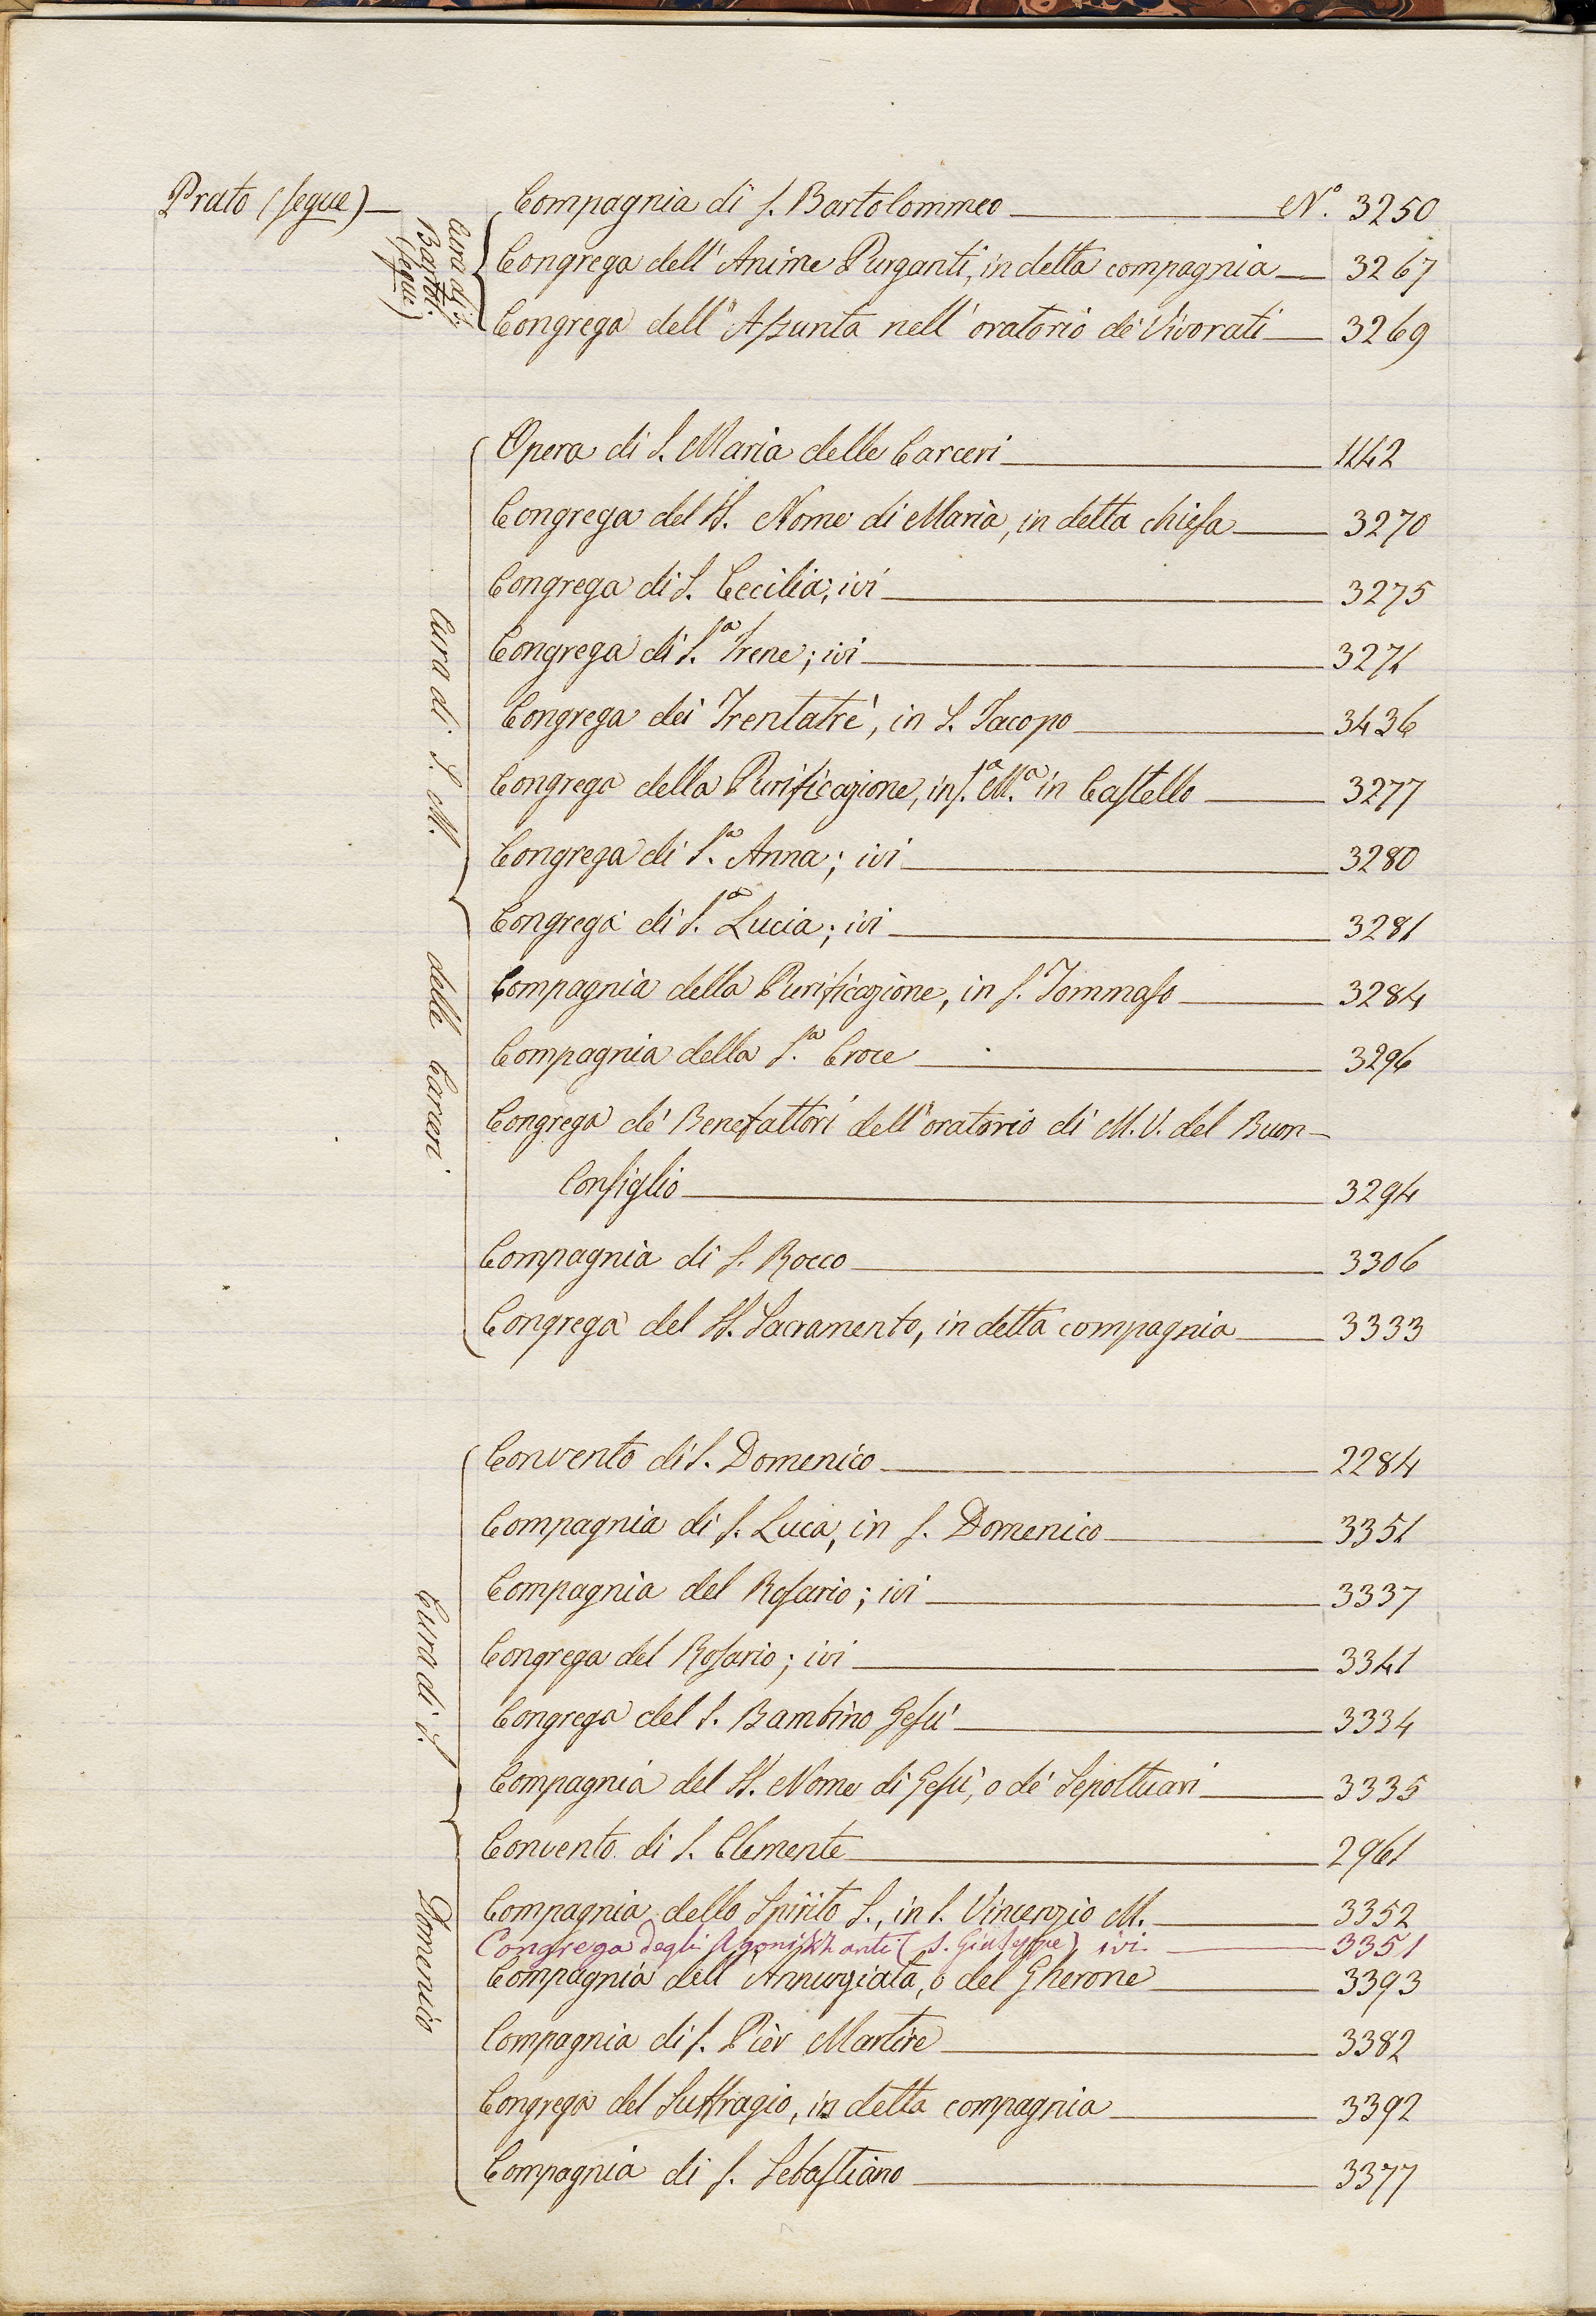 Prato (segue) — Compagnia di S. Bartolommeo — N.° 3250
Cura di S. Bartol. (segue)
Congrega dell' Anime Purganti, in detta compagnia — 3267
Congrega dell' Assunta nell' oratorio de' Vivorati — 3269
Cura di S. M. delle Carceri
Opera di S. Maria delle Carceri — 1142
Congrega del SS. Nome di Maria, in detta chiesa — 3270
Congrega di S. Cecilia; ivi — 3275
Congrega di S.ª Irene; ivi — 3271
Congrega dei Trentatrè, in S. Jacopo — 3436
Congrega della Purificazione, in S.ª M.ª in Castello — 3277
Congrega di S.ª Anna; ivi — 3280
Congrega di S.ª Lucia; ivi — 3281
Compagnia della Purificazione, in S. Tommaso — 3284
Compagnia della S.ª Croce — 3296
Congrega de' Benefattori dell' oratorio di M. V. del Buon-
Consiglio — 3294
Compagnia di S. Rocco — 3306
Congrega del SS. Sacramento, in detta compagnia — 3333
Cura di S. Domenico
Convento di S. Domenico — 2284
Compagnia di S. Luca, in S. Domenico — 3351
Compagnia del Rosario; ivi — 3337
Congrega del Rosario; ivi — 3341
Congrega del S. Bambino Gesù — 3334
Compagnia del SS. Nome di Gesù, o de' Sepoltuari — 3335
Convento di S. Clemente — 2961
Compagnia dello Spirito S., in S. Vincenzio M. — 3352
Congrega degli (S. Giuseppe) ivi — 3351
Compagnia dell' Annunziata, o del Gherone — 3393
Compagnia di S. Pier Martire — 3382
Congrega del Suffragio, in detta compagnia — 3392
Compagnia di S. Sebastiano — 3377